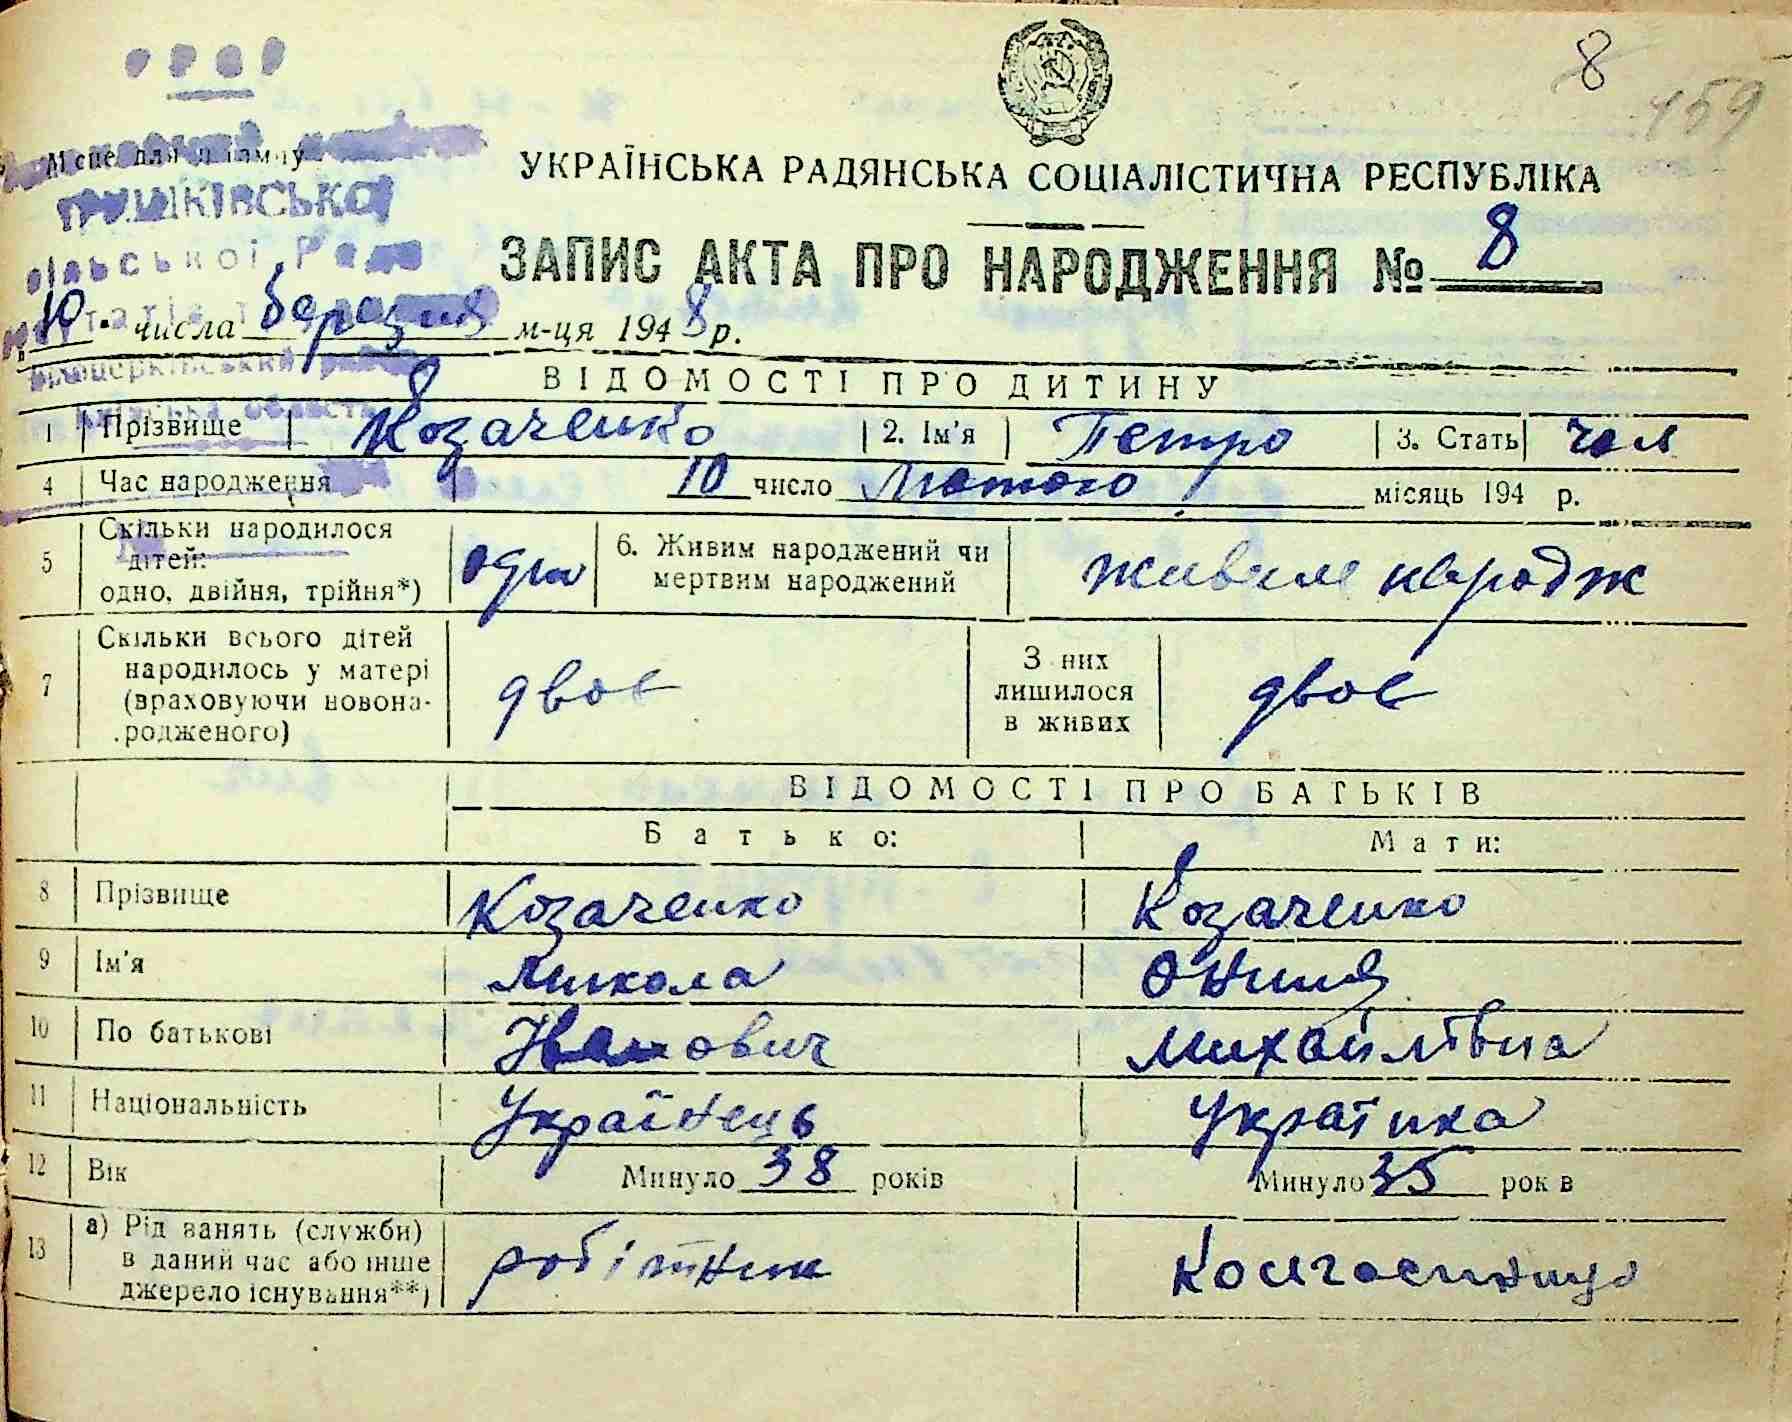 УРСР
8
159
Місце для штампу
УКРАЇНСЬКА РАДЯНСЬКА СОЦІАЛІСТИЧНА РЕСПУБЛІКА
сільської Ради
ЗАПИС АКТА ПРО НАРОДЖЕННЯ № 8
10 числа березня м-ця 1948 р.
Білоцерківський район
Київська область
ВІДОМОСТІ ПРО ДИТИНУ
1 Прізвище Козаченко 2. Ім'я Петро 3. Стать чол
4 Час народження 10 число Лютого місяць 194 р.
5 Скільки народилося дітей: одно, двійня, трійня*) одно 6. Живим народжений чи мертвим народжений живим народж
7 Скільки всього дітей народилось у матері (враховуючи новона-родженого) двоє З них лишилося в живих двоє
ВІДОМОСТІ ПРО БАТЬКІВ
Батько: Мати:
8 Прізвище Козаченко Козаченко
9 Ім'я Микола
10 По батькові Іванович Михайлівна
11 Національність Українець Українка
12 Вік Минуло 38 років Минуло 35 рок в
13 а) Рід занять (служби) в даний час або інше джерело існування**) робітник Колгоспниця